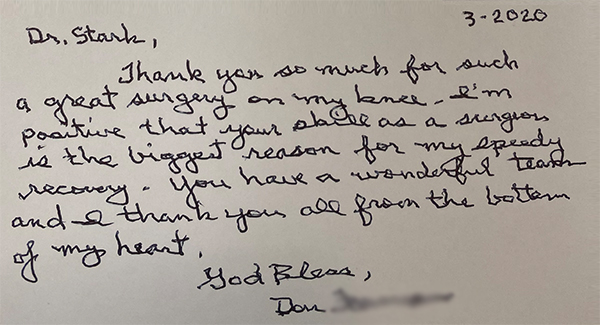 3-2020
Dr. Stark,
Thank you so much for such
a great surgery on my knee. I'm
positive that your skill as a surgeon
is the biggest reason for my speedy
recovery. You have a wonderful team
and I thank you all from the bottom
of my heart.
God Bless,
Don